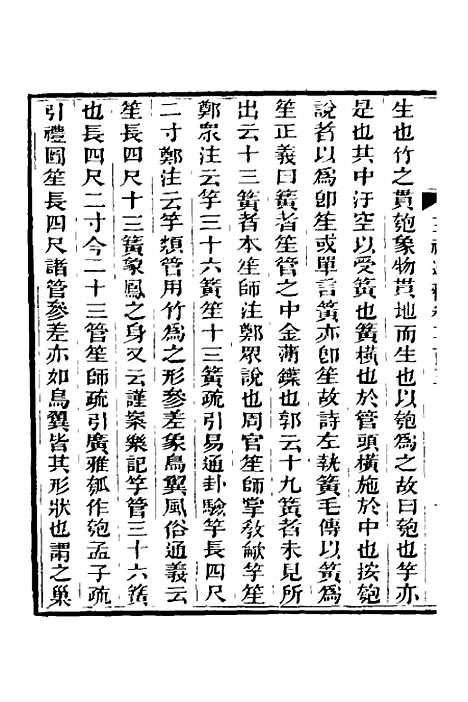 生也竹之貫匏象物貫地而生也以匏爲之故曰匏也竽亦
是也其中汙空以受簧也簧橫也於管頭橫施於中也按匏
說者以爲卽笙或單言簧亦卽笙故詩左執簧毛傳以簧爲
笙正義曰簧者笙管之中金薄鍱也郭云十九簧者未見所
出云十三簧者本笙師注鄭眾說也周官笙師掌敎龡竽笙
鄭眾注云竽三十六簧笙十三簧疏引易通卦驗竽長四尺
二寸鄭注云竽類管用竹爲之形參差象鳥翼風俗通義云
笙長四尺十三簧象鳳之身又云謹案樂記竽管三十六簧
也長四尺二寸今二十三管笙師疏引廣雅瓠作匏孟子疏
引禮圖笙長四尺諸管參差亦如鳥翼皆其形狀也謂之巢